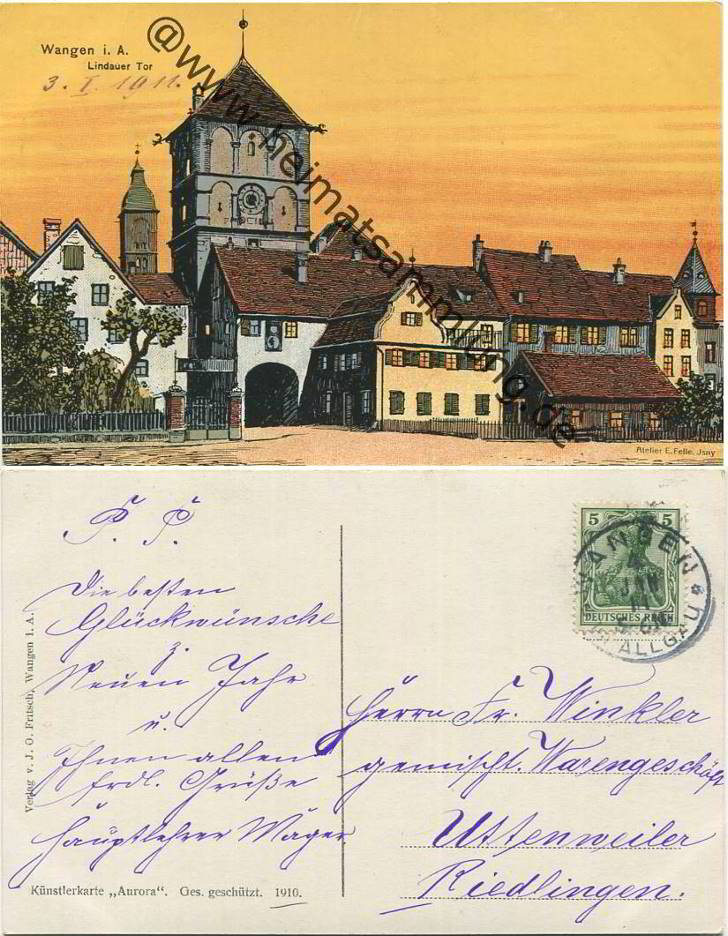 Wangen i. A.
Lindauer Tor
3. I. 1911.
@www.heimatsammlung.de
Atelier E. Felle. Jsny
P. P.
Die besten
Glückwünsche
z.
Neuen Jahr
u.
Ihnen allen
frdl. Grüße
Hauptlehrer Mager.
Verlag v. J. O. Fritsch, Wangen i. A.
Künstlerkarte „Aurora“. Ges. geschützt. 1910.
5 5
DEUTSCHES REICH
WANGEN
JAN
11
ALLGÄU
Herrn Fr. Winkler
gemischt. Warengeschäft
Uttenweiler
Riedlingen.